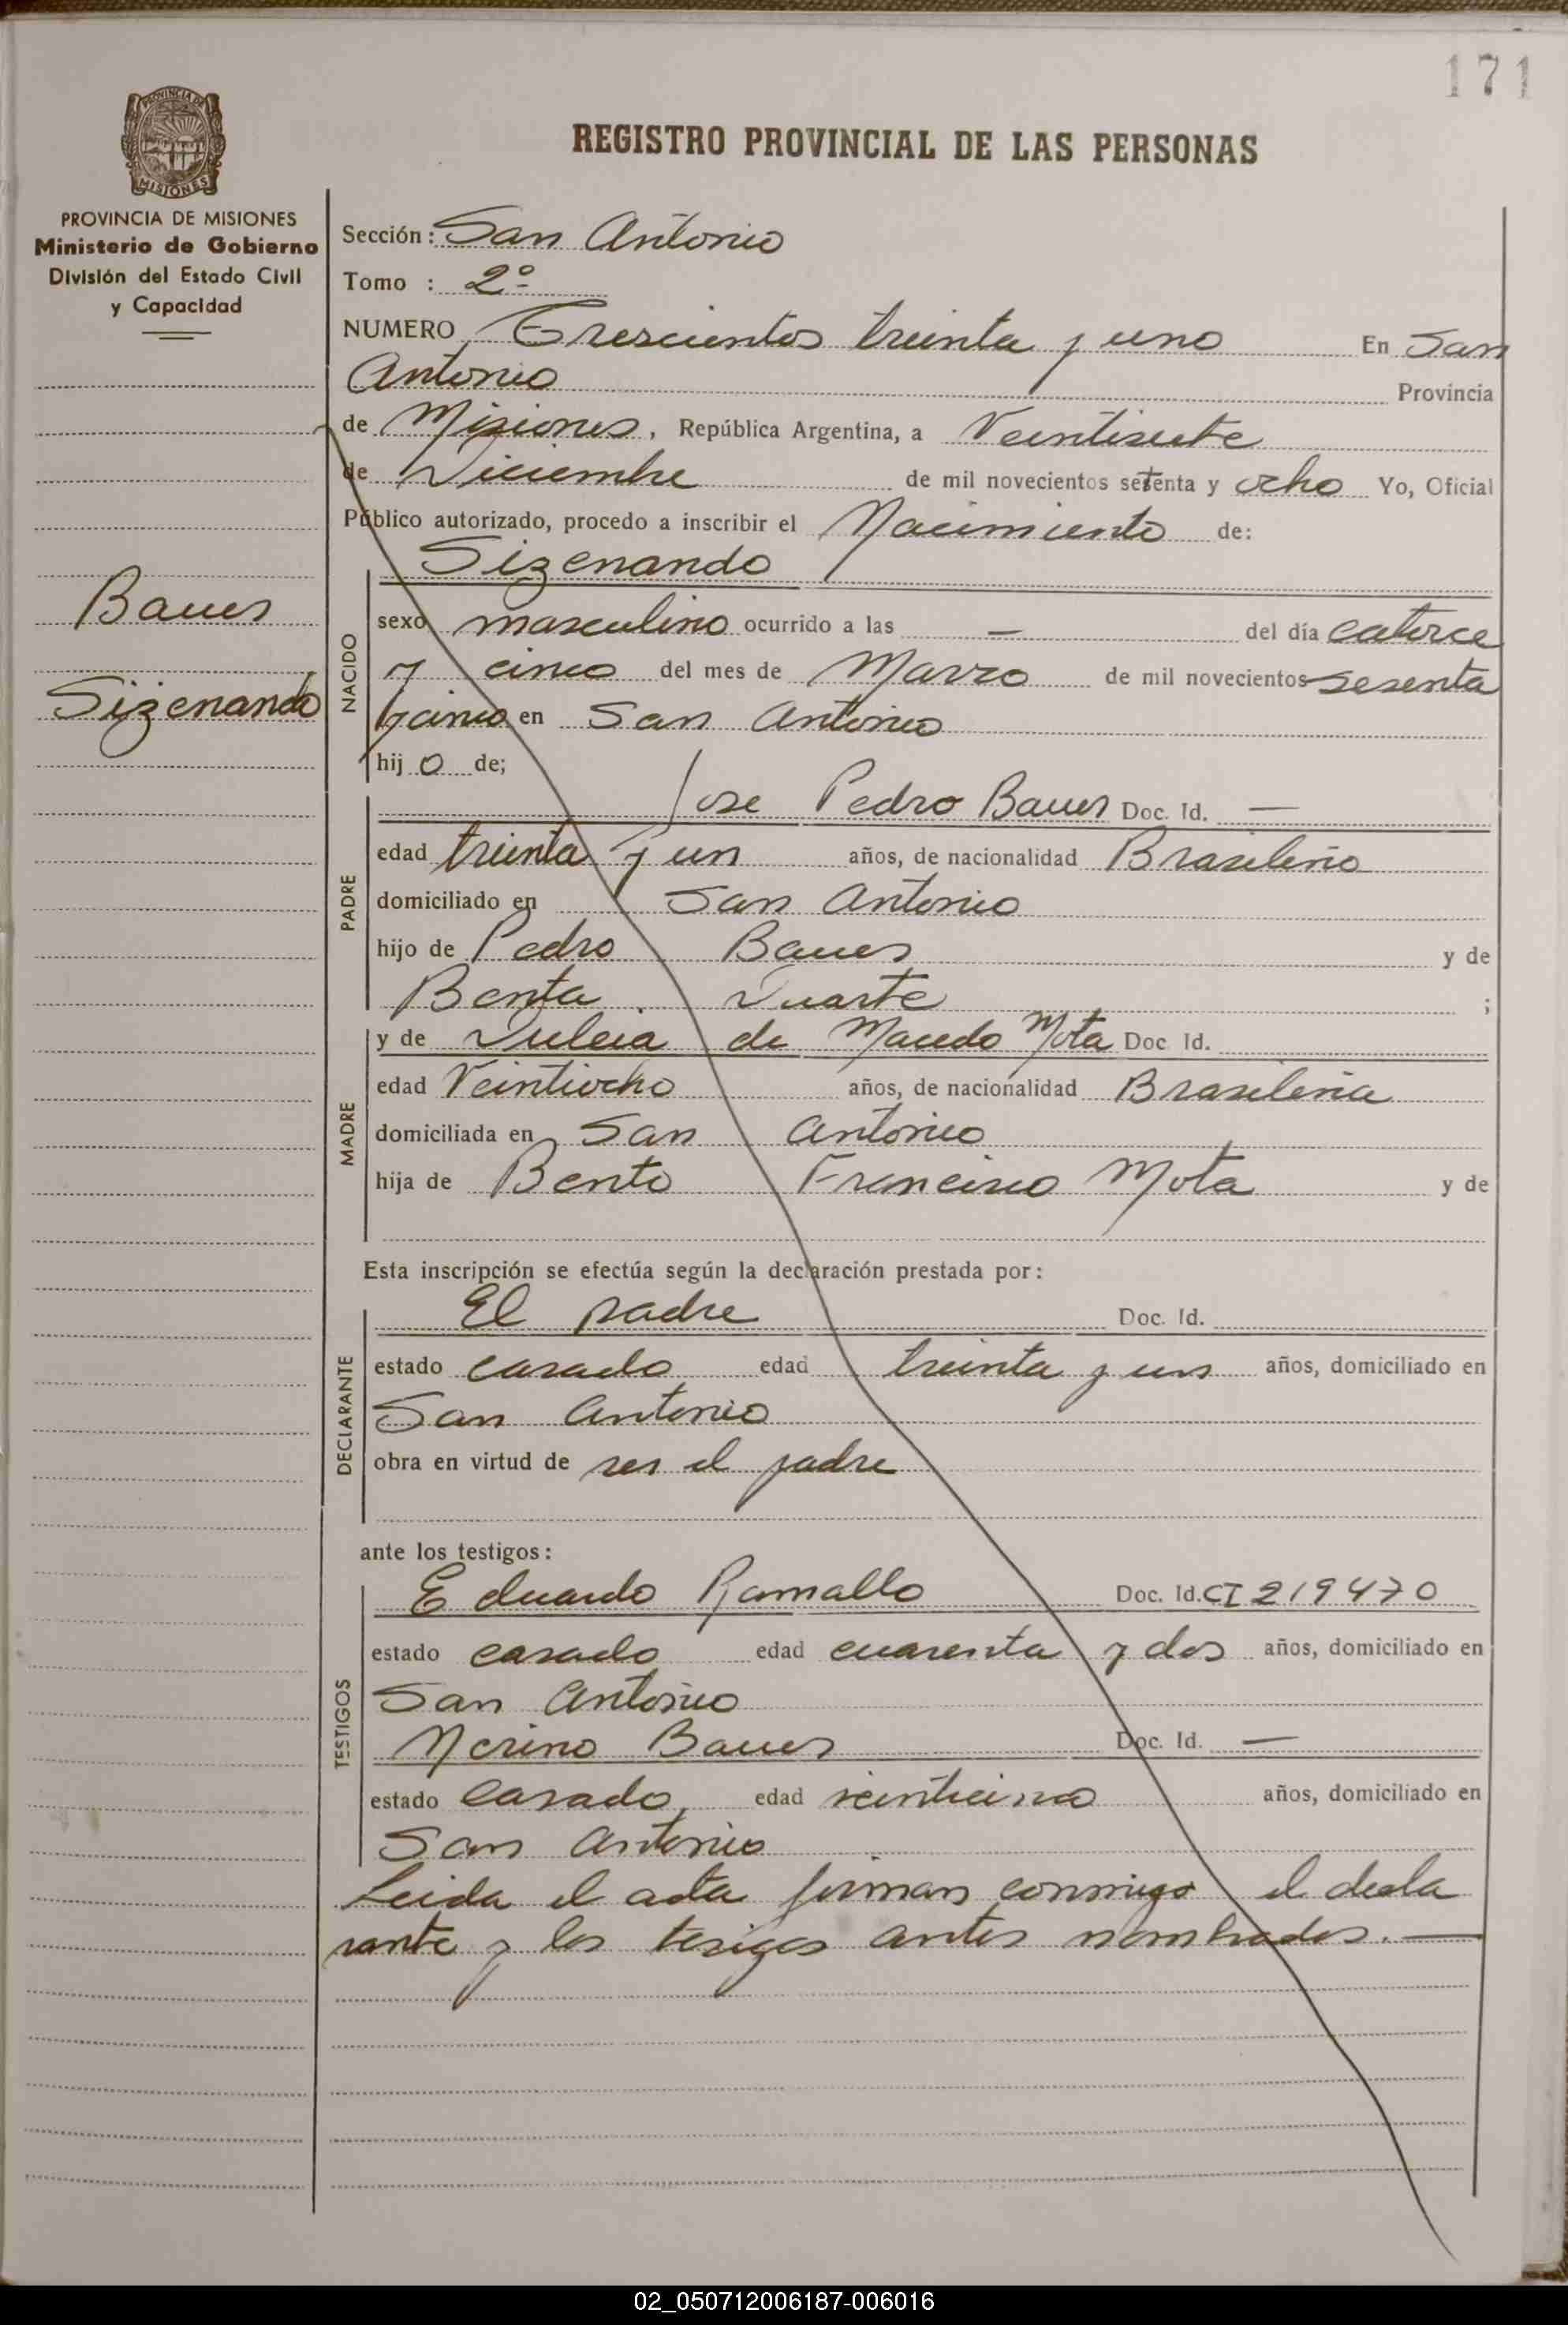 171
REGISTRO PROVINCIAL DE LAS PERSONAS
PROVINCIA DE MISIONES
MISIONES
PROVINCIA DE MISIONES
Ministerio de Gobierno
División del Estado Civil
y Capacidad
Bauer
Sizenando
Sección: San Antonio
Tomo : 2º
NUMERO Trescientos treinta y uno En San
Antonio Provincia
de Misiones, República Argentina, a Veintisiete
de Diciembre de mil novecientos setenta y ocho Yo, Oficial
Público autorizado, procedo a inscribir el Nacimiento de:
Sizenando
NACIDO
sexo masculino ocurrido a las — del día catorce
y cinco del mes de Marzo de mil novecientos sesenta
y cinco en San Antonio
hij o de;
PADRE
Jose Pedro Bauer Doc. Id. —
edad treinta y un años, de nacionalidad Brasileño
domiciliado en San Antonio
hijo de Pedro Bauer y de
Benta Duarte ;
MADRE
y de Dulcia de Macedo Mota Doc Id.
edad Veintiocho años, de nacionalidad Brasileña
domiciliada en San Antonio
hija de Bento Francisco Mota y de
Esta inscripción se efectúa según la declaración prestada por:
DECLARANTE
El padre Doc. Id.
estado casado edad treinta y un años, domiciliado en
San Antonio
obra en virtud de ser el padre
ante los testigos:
TESTIGOS
Eduardo Ramallo Doc. Id. CI 219470
estado casado edad cuarenta y dos años, domiciliado en
San Antonio
Nerino Bauer Doc. Id. —
estado casado, edad veinticinco años, domiciliado en
San Antonio
Leida el acta firman conmigo el decla
rante y los tesigos antes nombrados. —
02_050712006187-006016